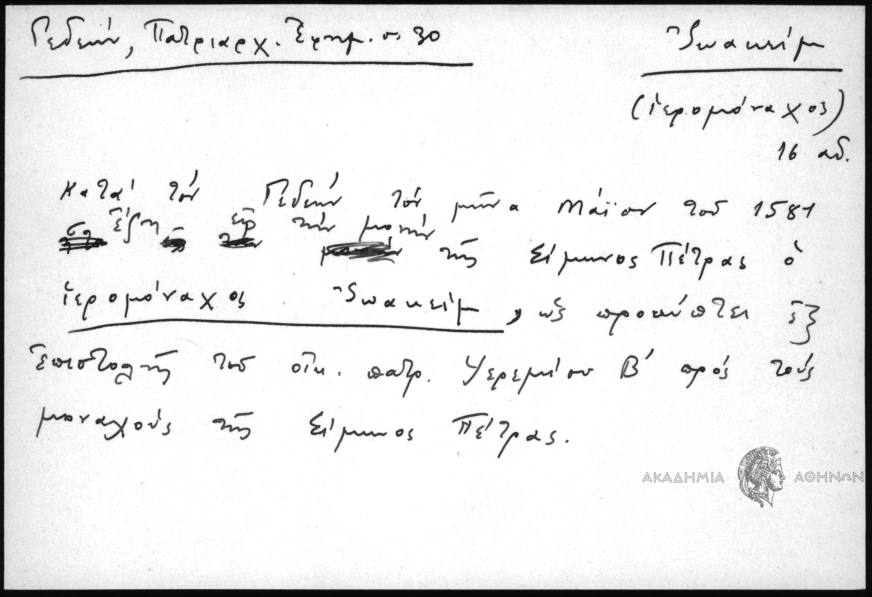 Γεδεών, Πατριαρχ. Ἐφημ. σ. 30
Ἰωακεὶμ
(ἱερομόναχος)
16 αἰ.
Κατὰ τὸν Γεδεὼν τὸν μῆνα Μάϊον τοῦ 1581
ἔζη εἰς τὴν μονὴν τῆς Σίμωνος Πέτρας ὁ
ἱερομόναχος Ἰωακεὶμ, ὡς προκύπτει ἐξ
ἐπιστολῆς τοῦ οἰκ. πατρ. Ἱερεμίου Β' πρὸς τοὺς
μοναχοὺς τῆς Σίμωνος Πέτρας.
ΑΚΑΔΗΜΙΑ ΑΘΗΝΩΝ